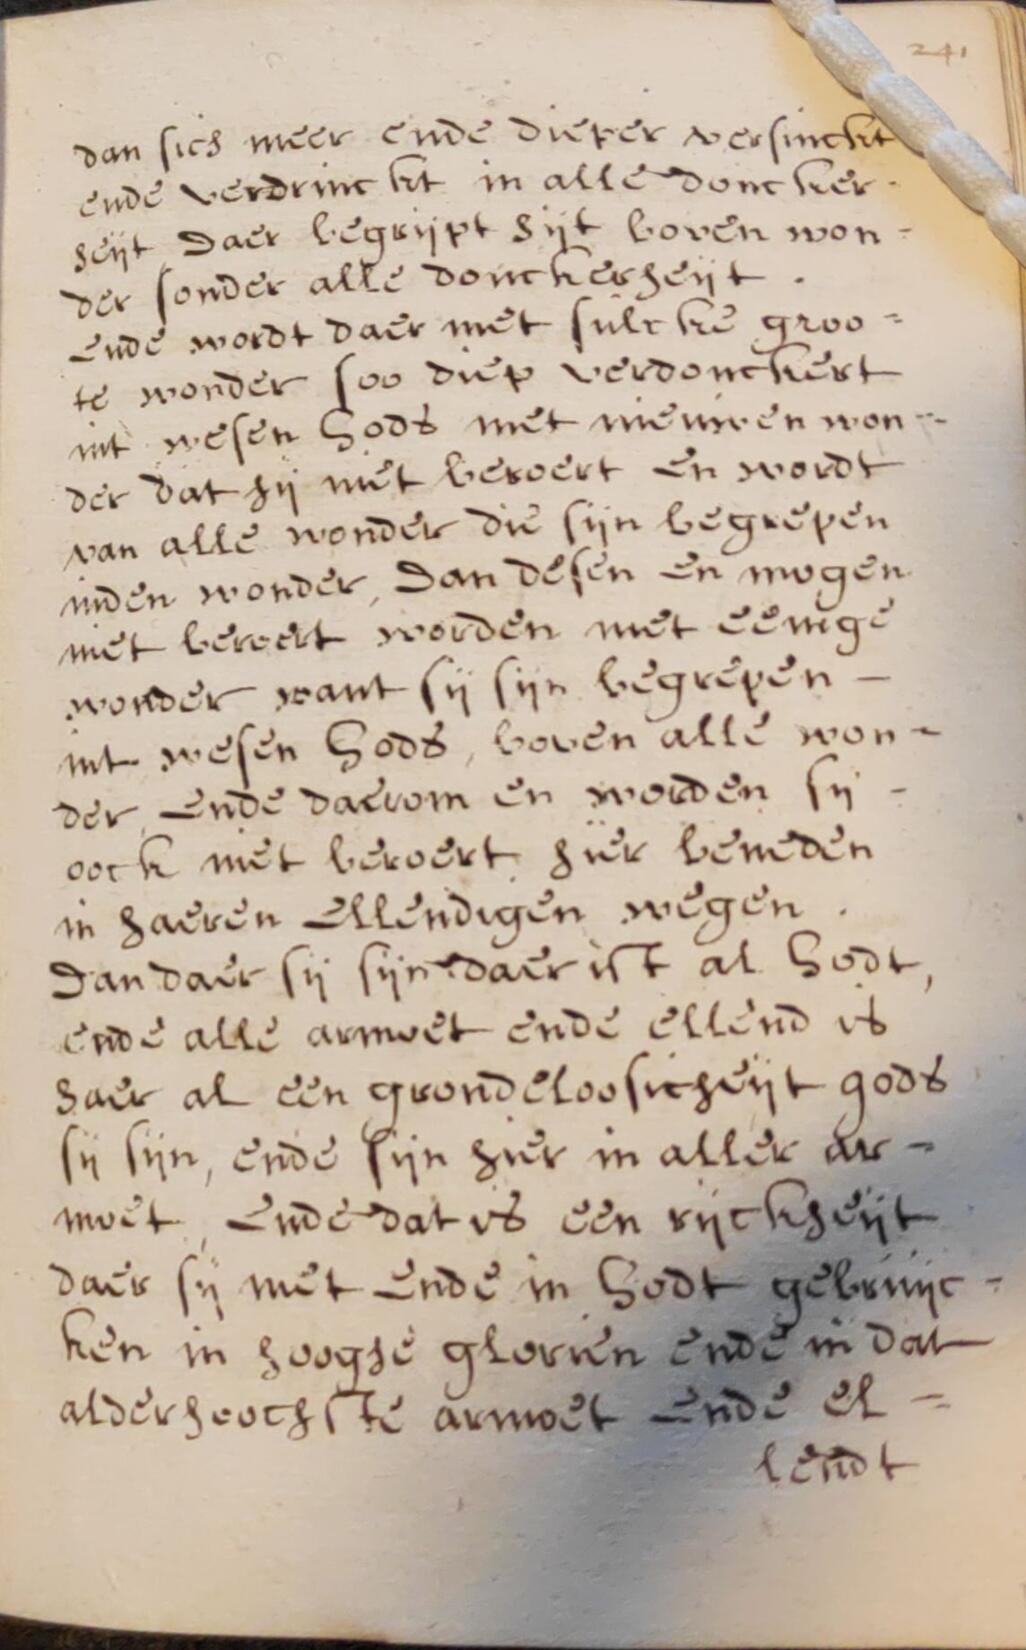 241
dan sich meer ende dieper versinckt
ende verdrinckt in alle doncker-
heijt Daer begrijpt hijt boven won-
der sonder alle donckerheijt.
Ende wordt daer met sulcke groo-
te wonder soo diep verdonckert
int wesen Gods met nieuwen won-
der dat hij niet beroert en wordt
van alle wonder die sijn begrepen
inden wonder, Dan desen en mogen
niet beroert worden met eenige
wonder want sij sijn begrepen -
int wesen Gods, boven alle won-
der, Ende daerom en worden sij -
oock niet beroert hier beneden
in haeren Ellendigen wegen.
Dan daer sij sijn daer ist al Godt,
ende alle armoet ende ellend is
haer al een grondeloosicheijt gods
sij sijn, ende sijn hier in aller ar-
moet, Ende dat is een rijckheijt
daer sij met Ende in Godt gebruijc-
ken in hooghe glorien ende in dat
alderhoochste armoet Ende el-
lendt